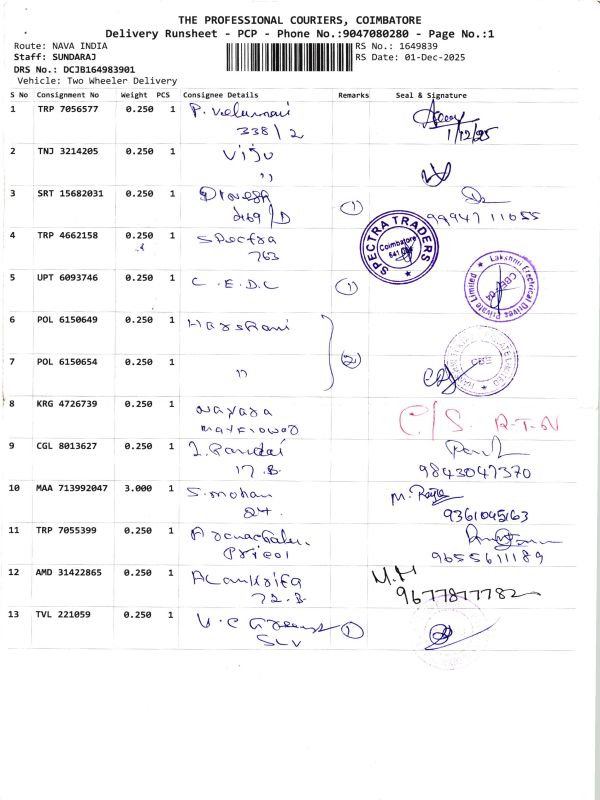 THE PROFESSIONAL COURIERS, COIMBATORE
Delivery Runsheet - PCP - Phone No.:9047080280 - Page No.:1
Route: NAVA INDIA RS No.: 1649839
Staff: SUNDARAJ RS Date: 01-Dec-2025
DRS No.: DCJB164983901
Vehicle: Two Wheeler Delivery
S No Consignment No Weight PCS Consignee Details Remarks Seal & Signature
1 TRP 7056577 0.250 1
338/2 1/12/25
2 TNJ 3214205 0.250 1 Viju
"
3 SRT 15682031 0.250 1 (1)
/D 99947 11055
4 TRP 4662158 0.250 1 Spectra SPECTRA TRADERS Coimbatore
763
5 UPT 6093746 0.250 1 C.E.D.C (1) Lakshmi Electrical Drives Private Limited
6 POL 6150649 0.250 1 Harshani
(2) CBE
7 POL 6150654 0.250 1 "
8 KRG 4726739 0.250 1 C/S R-T-N
9 CGL 8013627 0.250 1
17.B 9843047370
10 MAA 713992047 3.000 1 S.mohan
84. 9361045163
11 TRP 7055399 0.250 1
9655611189
12 AMD 31422865 0.250 1 M.M
72.B 9677877782
13 TVL 221059 0.250 1 (1)
SLV